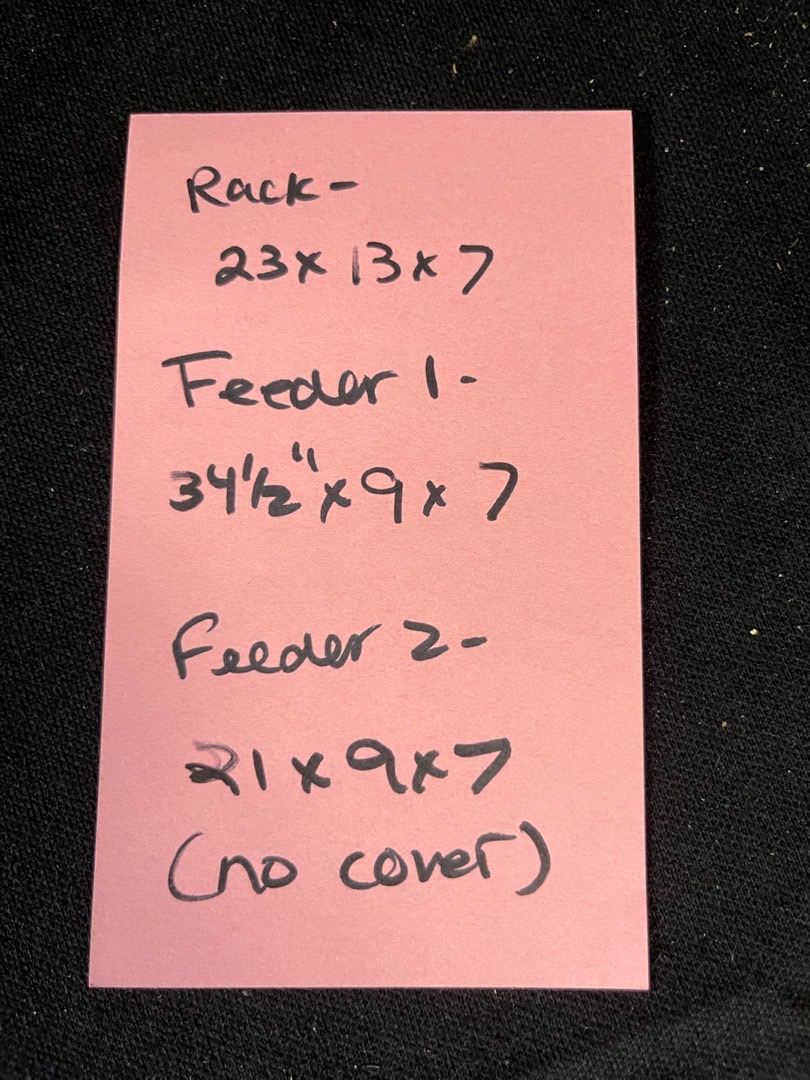 Rack-
23 x 13 x 7
Feeder 1-
34 1/2" x 9 x 7
Feeder 2-
21 x 9 x 7
(no cover)